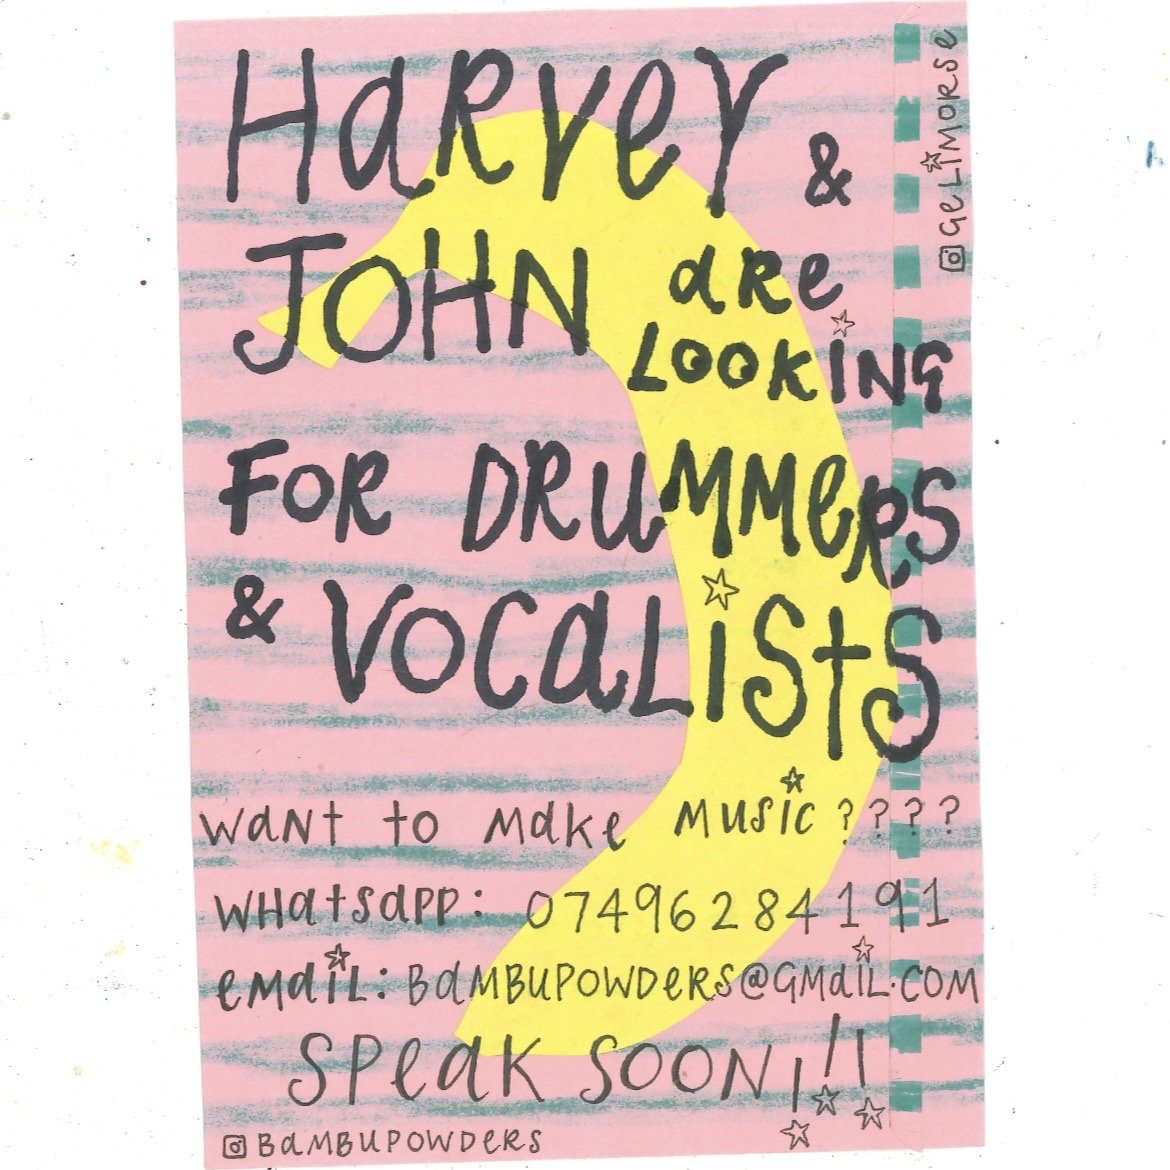 Harvey &
JOHN are
LOOKiNG
FOR DRUMMERS
& VOCALiSTS
want to make music????
WHatsapp: 07496284191
email: BAMBUPOWDERS@GMAiL.COM
SPeak SOON!!!
@BAMBUPOWDERS
@GeLiMORSe